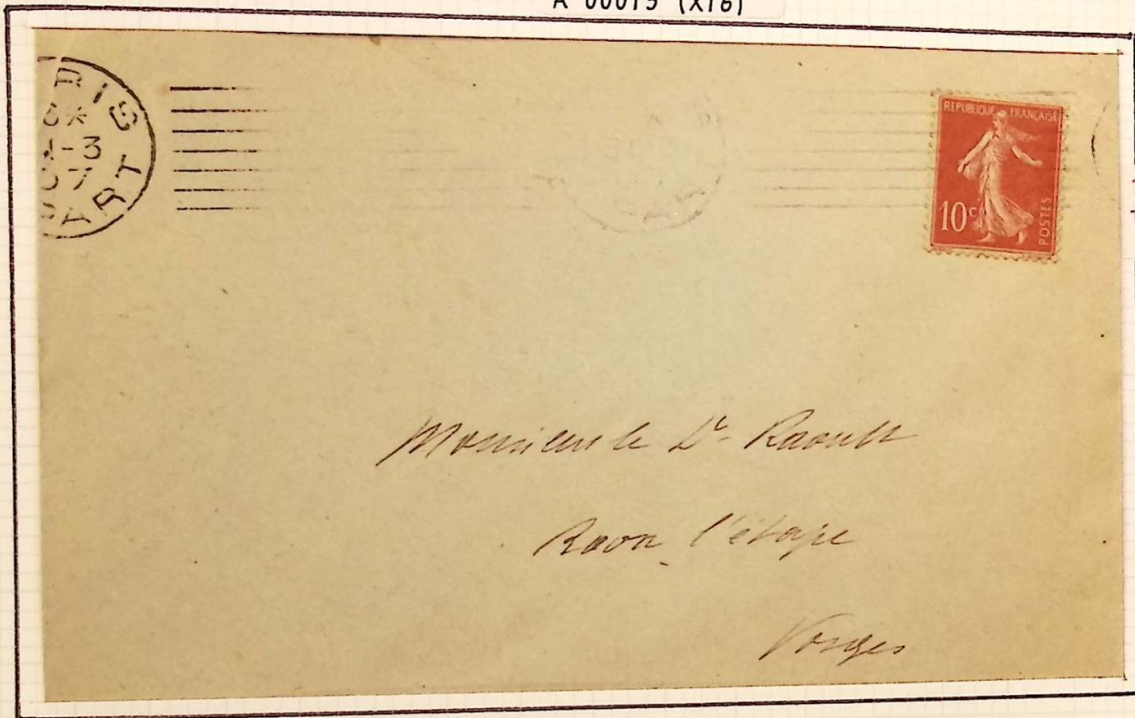 A 00019 (X16)
RIS
3*
-3
07
ART
REPUBLIQUE FRANÇAISE
10 c
POSTES
Monsieur le Dr Raoult
Raon l'étape
Vosges